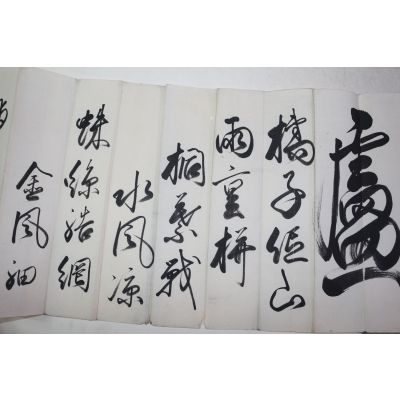 盧
橘子低山
雨重栟
櫚葉戰
水風涼
蛛絲結網
金風細